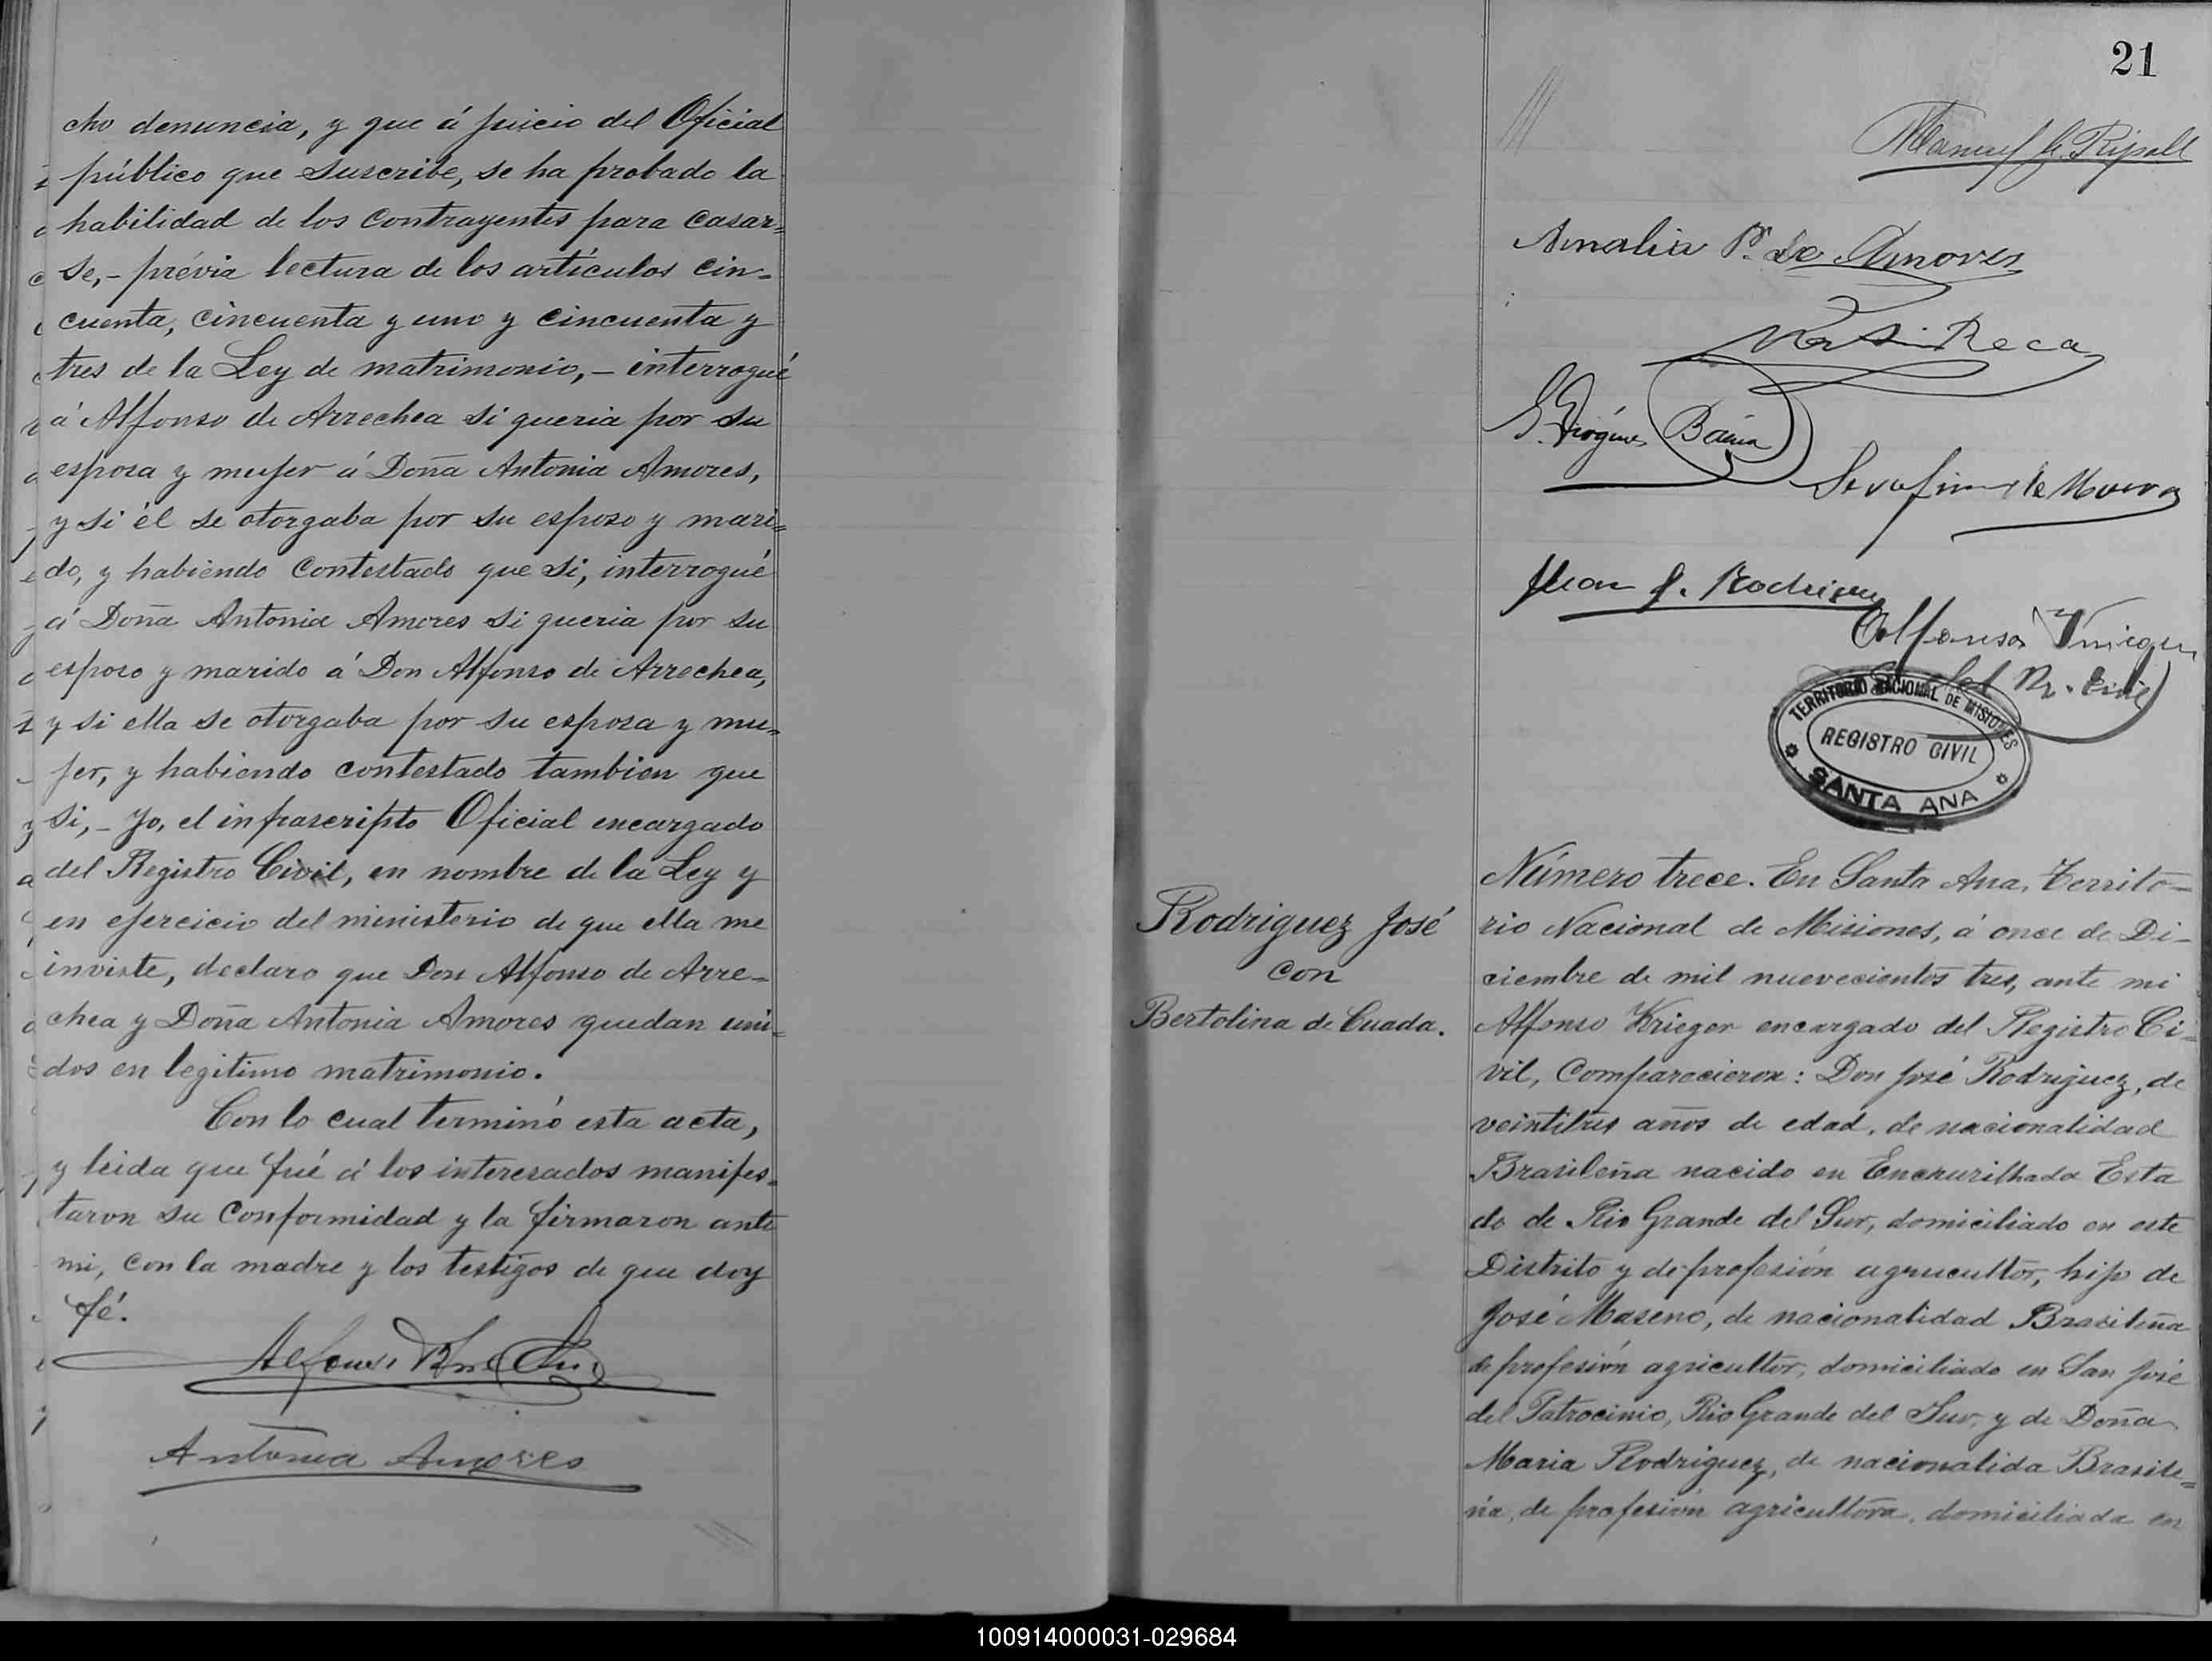 cho denuncia, y que á juicio del Oficial
público que suscribe, se ha probado la
habilidad de los contrayentes para casar=
se,- prévia lectura de los artículos cin-
cuenta, cincuenta y uno y cincuenta y
tres de la Ley de matrimonio,- interrogué
á Alfonso de Arrechea si queria por su
esposa y mujer á Doña Antonia Amores,
y si él se otorgaba por su esposo y mari=
do, y habiendo contestado que si, interrogué
á Doña Antonia Amores si queria por su
esposo y marido á Don Alfonso de Arrechea,
y si ella se otorgaba por su esposa y mu=
jer, y habiendo contestado tambien que
si,- Yo, el infrascripto Oficial encargado
del Registro Civil, en nombre de la Ley y
en ejercicio del ministerio de que ella me
inviste, declaro que Don Alfonso de Arre-
chea y Doña Antonia Amores quedan uni=
dos en legitimo matrimonio.
Con lo cual terminó esta acta,
y leida que fué á los interesados manifes=
taron su conformidad y la firmaron ante
mi, con la madre y los testigos de que doy
fé.
Antonia Amores
21
Manuel Ripoll
Amalia P. de Amores
Reca
Báena
Serafin de Moura
Juan Rodriguez
Alfonso Krieger
TERRITORIO NACIONAL DE MISIONES
REGISTRO CIVIL
SANTA ANA
Rodriguez José
con
Bertolina de Cuada.
Número trece. En Santa Ana, Territo-
rio Nacional de Misiones, á once de Di-
ciembre de mil nuevecientos tres, ante mi
Alfonso Krieger encargado del Registro Ci-
vil, comparecieron: Don José Rodriguez, de
veintitres años de edad, de nacionalidad
Brasileña nacido en Encrusilhada Esta
do de Rio Grande del Sur, domiciliado en este
Distrito y de profesión agricultor, hijo de
José Maseno, de nacionalidad Brasileña
de profesión agricultor, domiciliado en San José
del Patrocinio, Rio Grande del Sur, y de Doña
Maria Rodriguez, de nacionalida Brasile=
ña, de profesión agricultora, domiciliada en
100914000031-029684